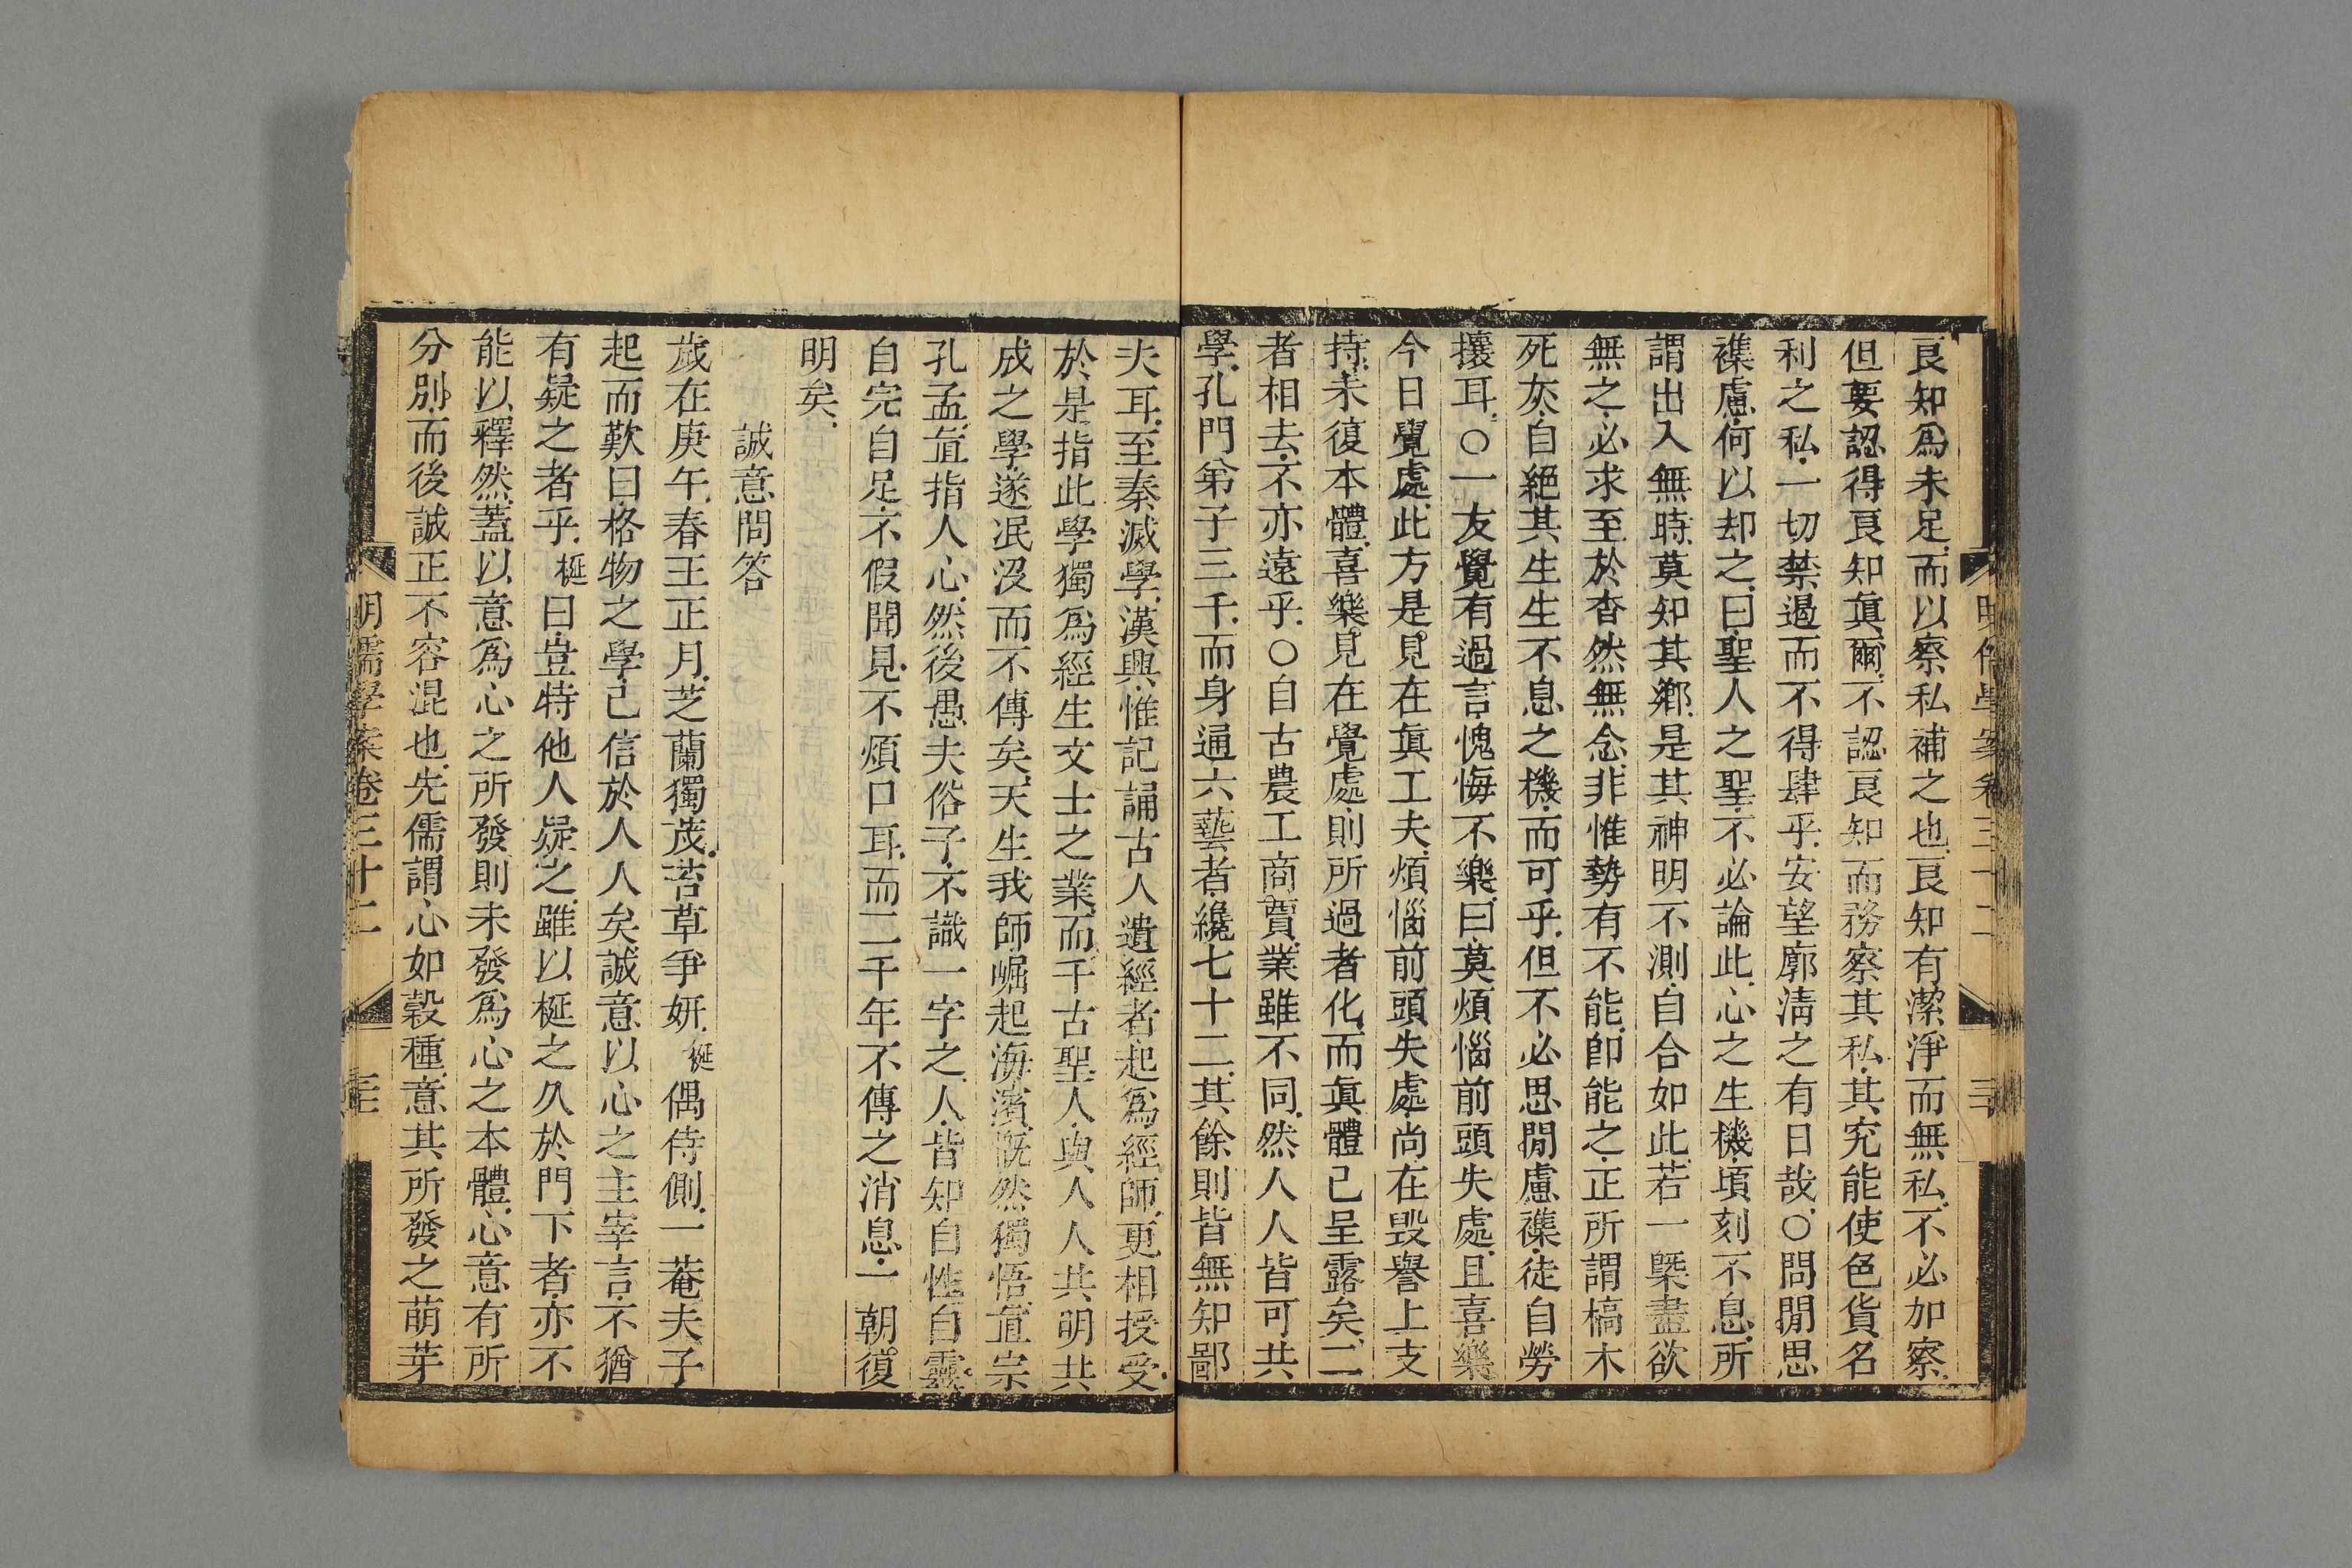 良知爲未足而以察私補之也良知有潔淨而無私不必加察
但要認得良知眞爾不認良知而務察其私其究能使色貨名
利之私一切禁遏而不得肆乎安望廓淸之有日哉○問閒思
襍慮何以却之曰聖人之聖不必論此心之生機頃刻不息所
謂出入無時莫知其鄉是其神明不測自合如此若一槩盡欲
無之必求至於杳然無念非惟勢有不能卽能之正所謂槁木
死灰自絕其生生不息之機而可乎但不必思閒慮襍徒自勞
攘耳○一友覺有過言愧悔不樂曰莫煩惱前頭失處且喜樂
今日覺處此方是見在眞工夫煩惱前頭失處尚在毀譽上支
持未復本體喜樂見在覺處則所過者化而眞體已呈露矣二
者相去不亦遠乎○自古農工商賈業雖不同然人人皆可共
學孔門弟子三千而身通六藝者纔七十二其餘則皆無知鄙
夫耳至秦滅學漢興惟記誦古人遺經者起爲經師更相授受
於是指此學獨爲經生文士之業而千古聖人與人人共明共
成之學遂泯沒而不傳矣天生我師崛起海濱慨然獨悟直宗
孔孟直指人心然後愚夫俗子不識一字之人皆知自性自靈
自完自足不假聞見不煩口耳而二千年不傳之消息一朝復
明矣
誠意問答
歲在庚午春王正月芝蘭獨茂苔草爭妍梴偶侍側一菴夫子
起而歎曰格物之學已信於人人矣誠意以心之主宰言不猶
有疑之者乎梴曰豈特他人疑之雖以梴之久於門下者亦不
能以釋然蓋以意爲心之所發則未發爲心之本體心意有所
分別而後誠正不容混也先儒謂心如穀種意其所發之萌芽
明儒學案卷三十二